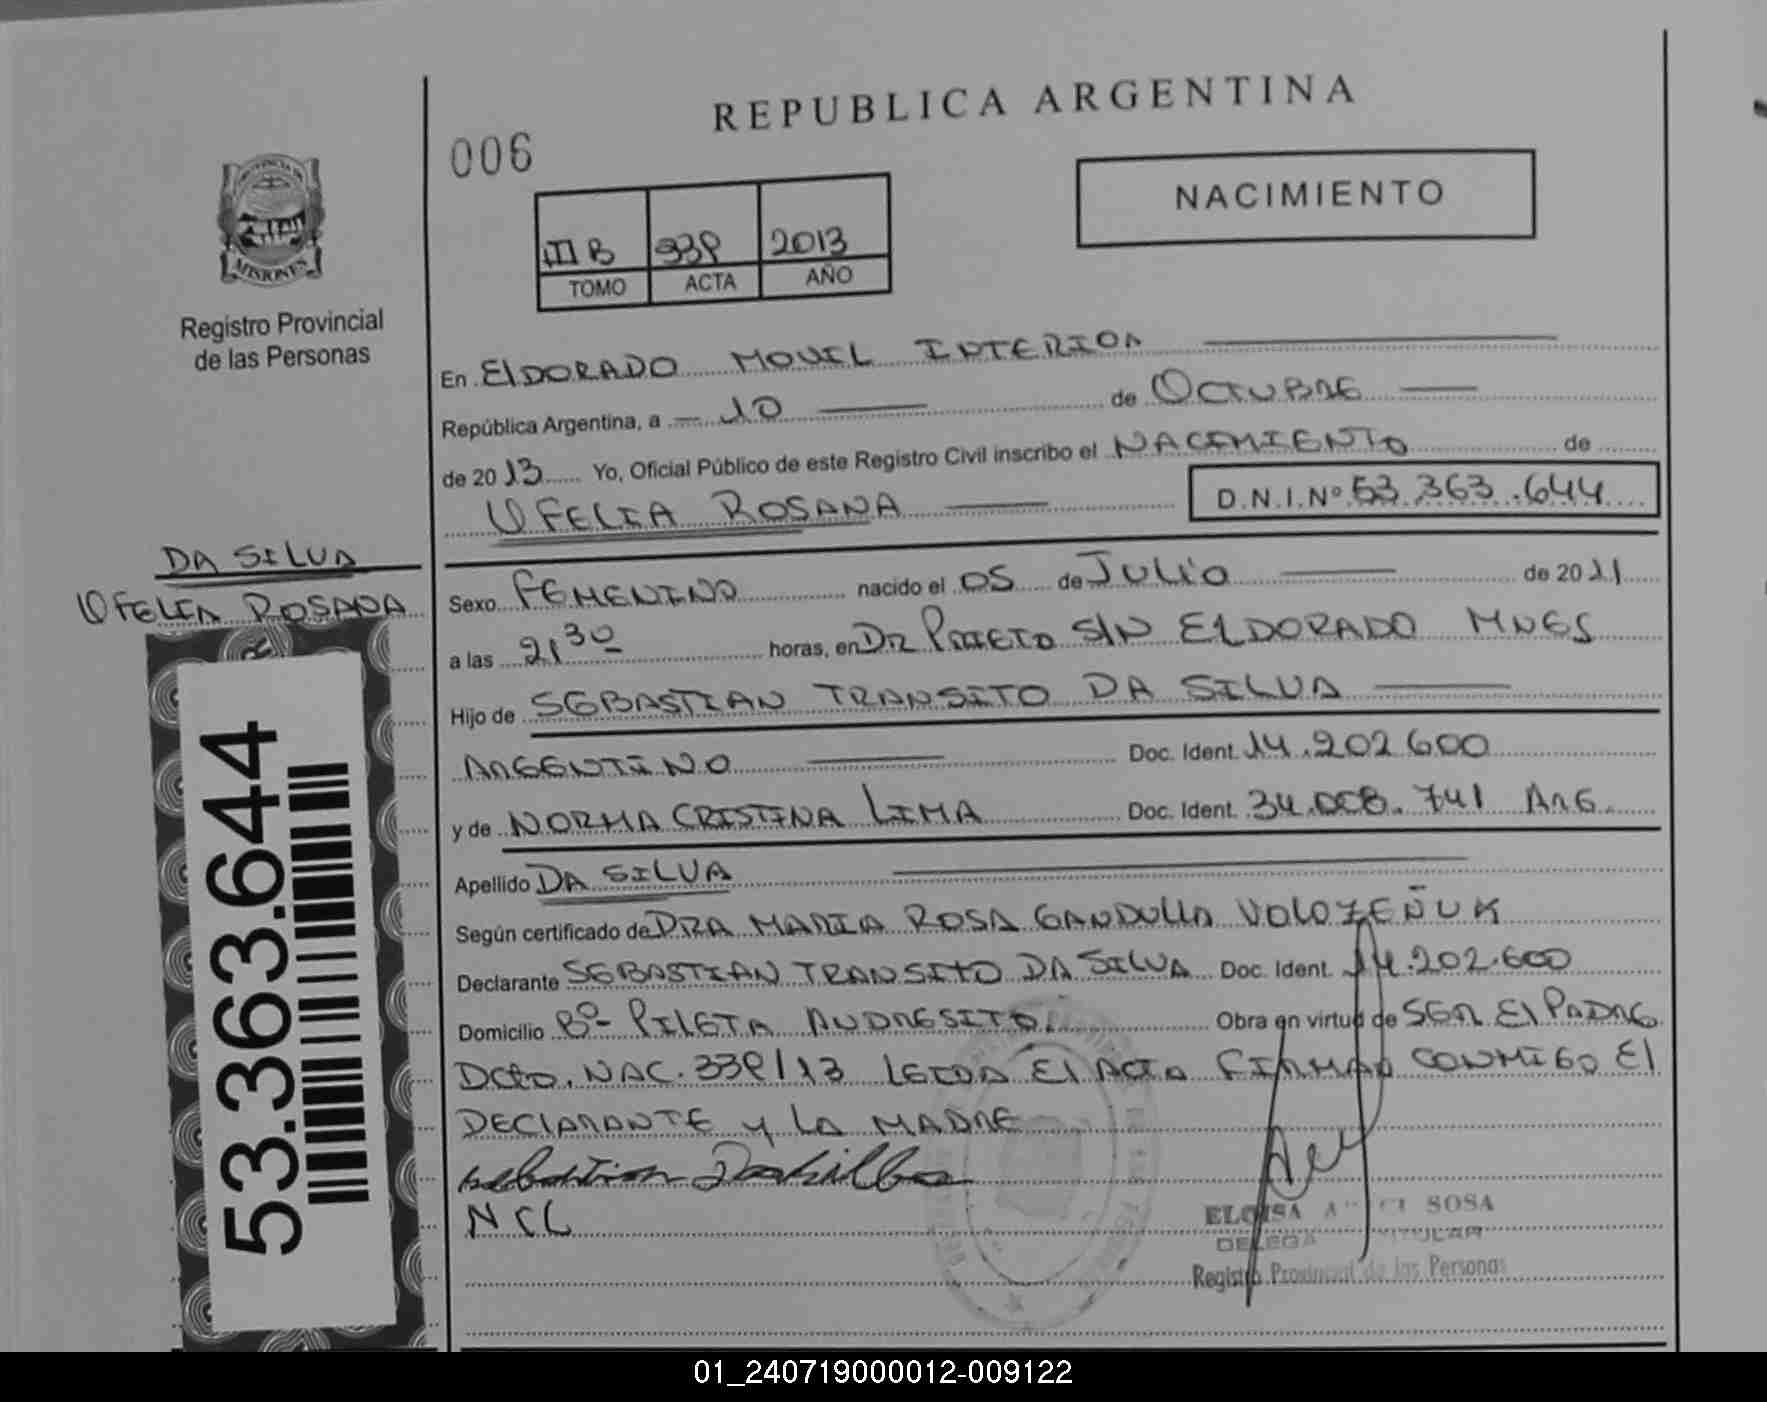 REPUBLICA ARGENTINA
006
NACIMIENTO
III B 939 2013
TOMO ACTA AÑO
PROVINCIA DE
MISIONES
Registro Provincial
de las Personas
En ELDORADO MOVIL INTERIOR
República Argentina, a 10 de OCTUBRE
de 2013 Yo, Oficial Público de este Registro Civil inscribo el NACIMIENTO de
OFELIA ROSANA D.N.I.Nº 53.363.644
DA SILVA
OFELIA ROSANA
Sexo FEMENINO nacido el 05 de JULIO de 2011
a las 21 30 horas, en DR PRIETO S/N ELDORADO MNES
Hijo de SEBASTIAN TRANSITO DA SILVA
ARGENTINO Doc. Ident. 14.202.600
y de NORMA CRISTINA LIMA Doc. Ident. 34.008.741 ARG.
Apellido DA SILVA
Según certificado de DRA MARIA ROSA GANDULLA VOLOZEÑUK
Declarante SEBASTIAN TRANSITO DA SILVA Doc. Ident. 14.202.600
Domicilio Bº PILETA ANDRESITO. Obra en virtud de SER EL PADRE
Dcto. NAC. 339/13 LEIDA EL ACTA FIRMAN CONMIGO EL
DECLARANTE Y LA MADRE
sebastian Dasilba
NCL
ELOISA SOSA
DELEGA TITULAR
Registro Provincial de las Personas
53.363.644
01_240719000012-009122